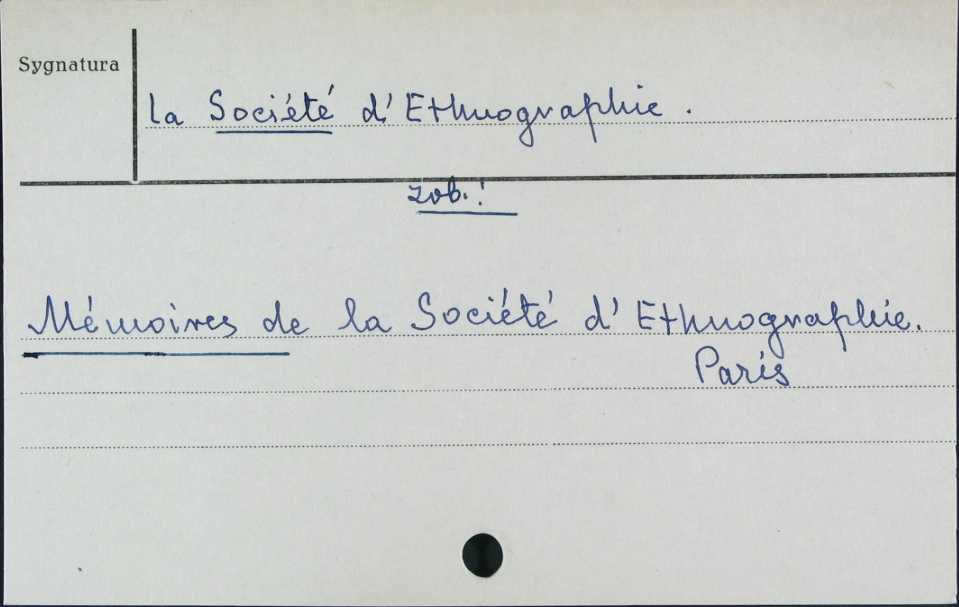 Sygnatura
la Société d'Ethnographie.
zob.!
Mémoires de la Société d'Ethnographie.
Paris